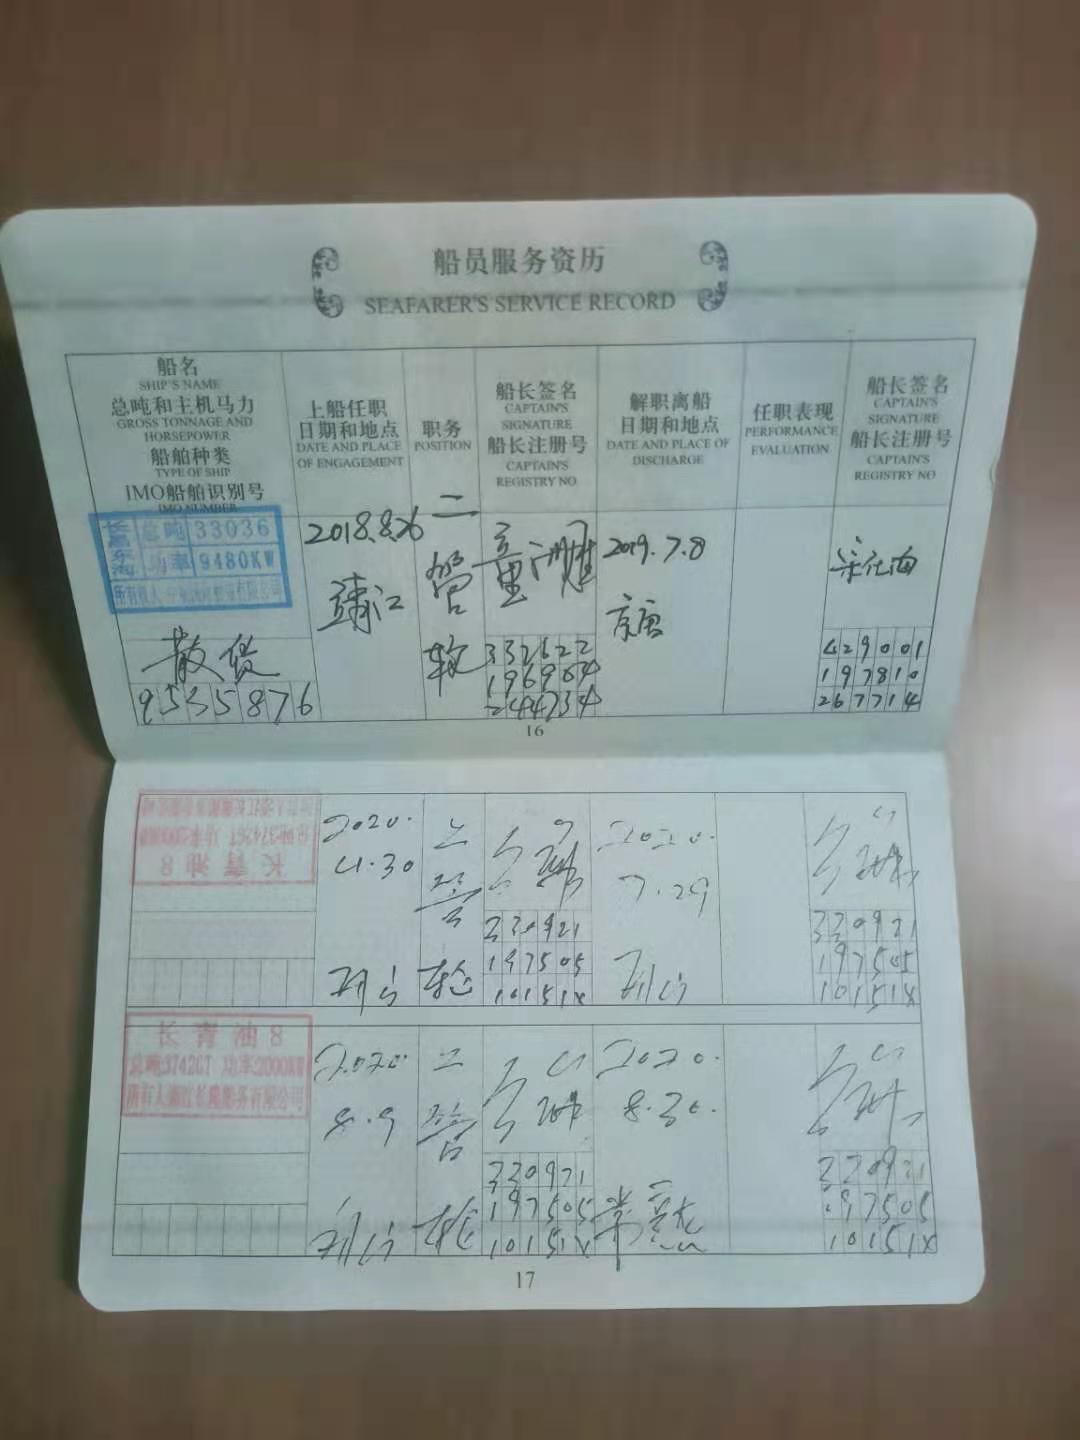 船员服务资历
SEAFARER'S SERVICE RECORD
船名
SHIP'S NAME
总吨和主机马力
GROSS TONNAGE AND
HORSEPOWER
船舶种类
TYPE OF SHIP
IMO船舶识别号
IMO NUMBER
上船任职
日期和地点
DATE AND PLACE
OF ENGAGEMENT
职务
POSITION
船长签名
CAPTAIN'S
SIGNATURE
船长注册号
CAPTAIN'S
REGISTRY NO
解职离船
日期和地点
DATE AND PLACE OF
DISCHARGE
任职表现
PERFORMANCE
EVALUATION
船长签名
CAPTAIN'S
SIGNATURE AND
船长注册号
CAPTAIN'S
REGISTRY NO
总吨 33036
功率 9480KW
散货
9535876
2018.8.26
靖江
二
管
轮
332622
196964
244734
2019.7.8
京唐
429001
197810
267714
16
长青油8
2020.
4.30
二
管
轮
330921
197505
10151X
2020.
7.29
330921
197505
10151X
长青油8
总吨:3742GT 功率:2000KW
2020
8.9
二
管
轮
330921
197505
10151X
2020.
8.30.
330921
197505
10151X
17